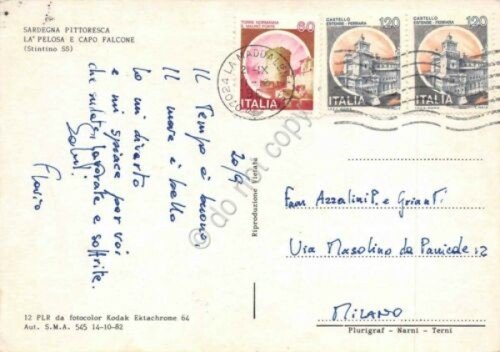 SARDEGNA PITTORESCA
LA PELOSA E CAPO FALCONE
(Stintino SS)
Il Tempo è buono,
Il mare è bello
Io mi diverto
e mi spiace per voi
che
lavorate e soffrite.
Saluti
Flavio
20/9
12 PLR da fotocolor Kodak Ektachrome 64
Aut. S.M.A. 545 14-10-82
Riproduzione Vietata
Plurigraf - Narni - Terni
60
ITALIA
CASTELLO
ESTENSE - FERRARA
120
ITALIA
CASTELLO
ESTENSE - FERRARA
120
ITALIA
07024 LA MADDALENA
IX
Fam Azzalini P. e Griant F.
Via Masolino da Panicale
MILANO
do not copy